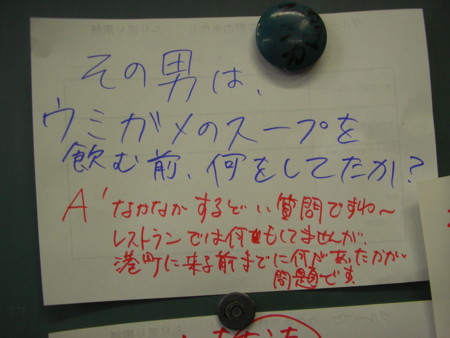 その男は、
ウミガメのスープを
飲む前、何をしてたか?
A' なかなかするどい質問ですね〜
レストランでは何もしてませんが、
港町に来る前までに何があったかが
問題です